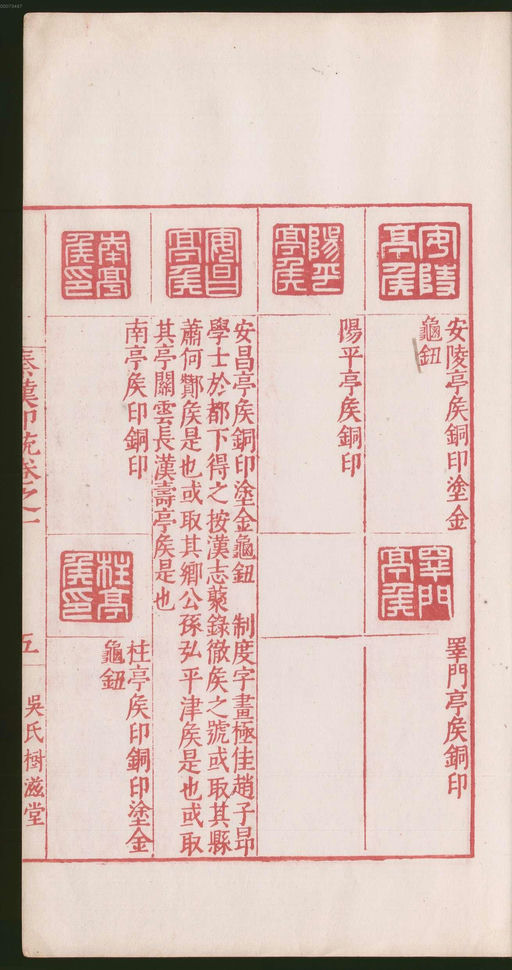 安陵亭侯
安陵亭矦銅印塗金
龜鈕
睪門亭侯
睪門亭矦銅印
陽平亭侯
陽平亭矦銅印
安昌亭侯
安昌亭矦銅印塗金龜鈕 制度字畫極佳趙子昂
學士於都下得之按漢志蔡錄徹矦之號或取其縣
蕭何酇矦是也或取其鄉公孫弘平津矦是也或取
其亭關雲長漢壽亭矦是也
南亭侯印
南亭矦印銅印
柱亭侯印
柱亭矦印銅印塗金
龜鈕
秦漢印統卷之一
五
吳氏樹滋堂
00073487